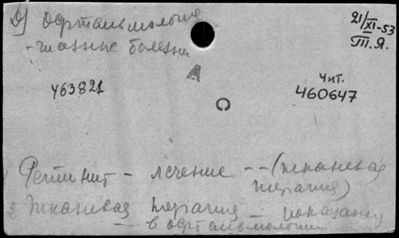 2) Офтальмология
21/XI-53
- глазные болезни
III. Я.
463821
Чит.
460647
Ретинит - лечение -- (тканевая
терапия)
Тканевая терапия - показания
- в офтальмологии